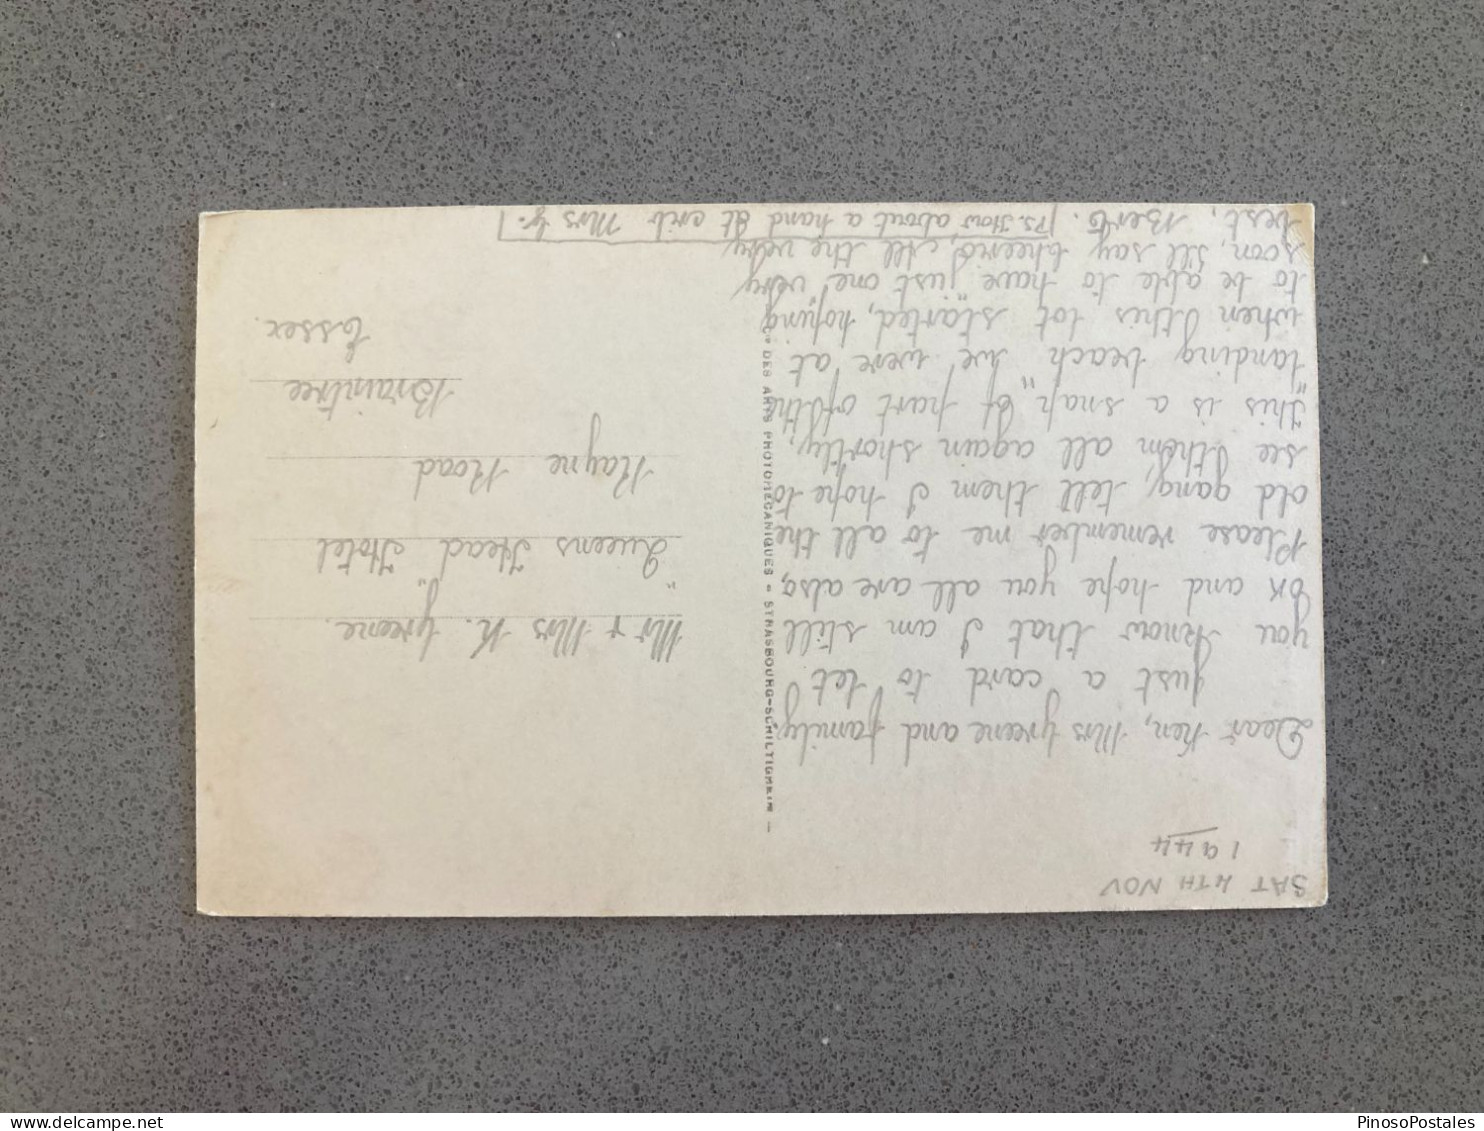 SAT 4TH NOV
1944
Dear Ken, Mrs Greene and family,
Just a card to let
you know that I am still
OK and hope you all are also,
Please remember me to all the
old gang, tell them I hope to
see them all again shortly,
This is a "snap" of part of the
landing beach we were at
when this lot started, hoping
to be able to have "just one" very
soon, I'll say cheerio, All the very
best, Bert. P.S. How about a hand at crib Mrs G.
Cie DES ARTS PHOTOMECANIQUES - STRASBOURG-SCHILTIGHEIM -
Mr + Mrs K. Greene.
"Queens Head" Hotel
Rayne Road
Braintree
Essex.
PinosoPostales